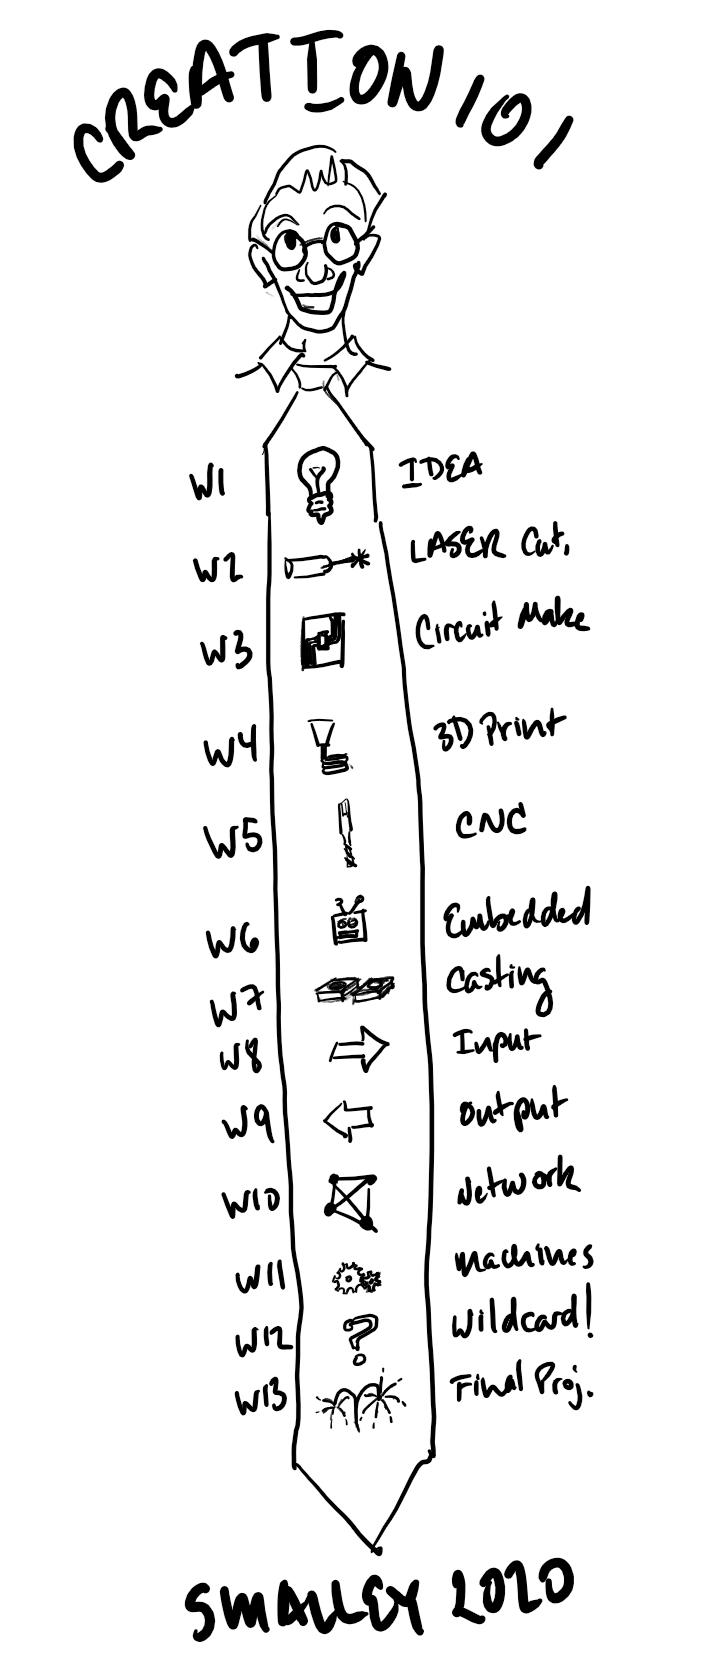 CREATION 101
W1 IDEA
W2 LASER Cut.
W3 Circuit Make
W4 3D Print
W5 CNC
W6 Embedded
W7 Casting
W8 Input
W9 Output
W10 Network
W11 Machines
W12 Wildcard!
W13 Final Proj.
SMALLEY 2020